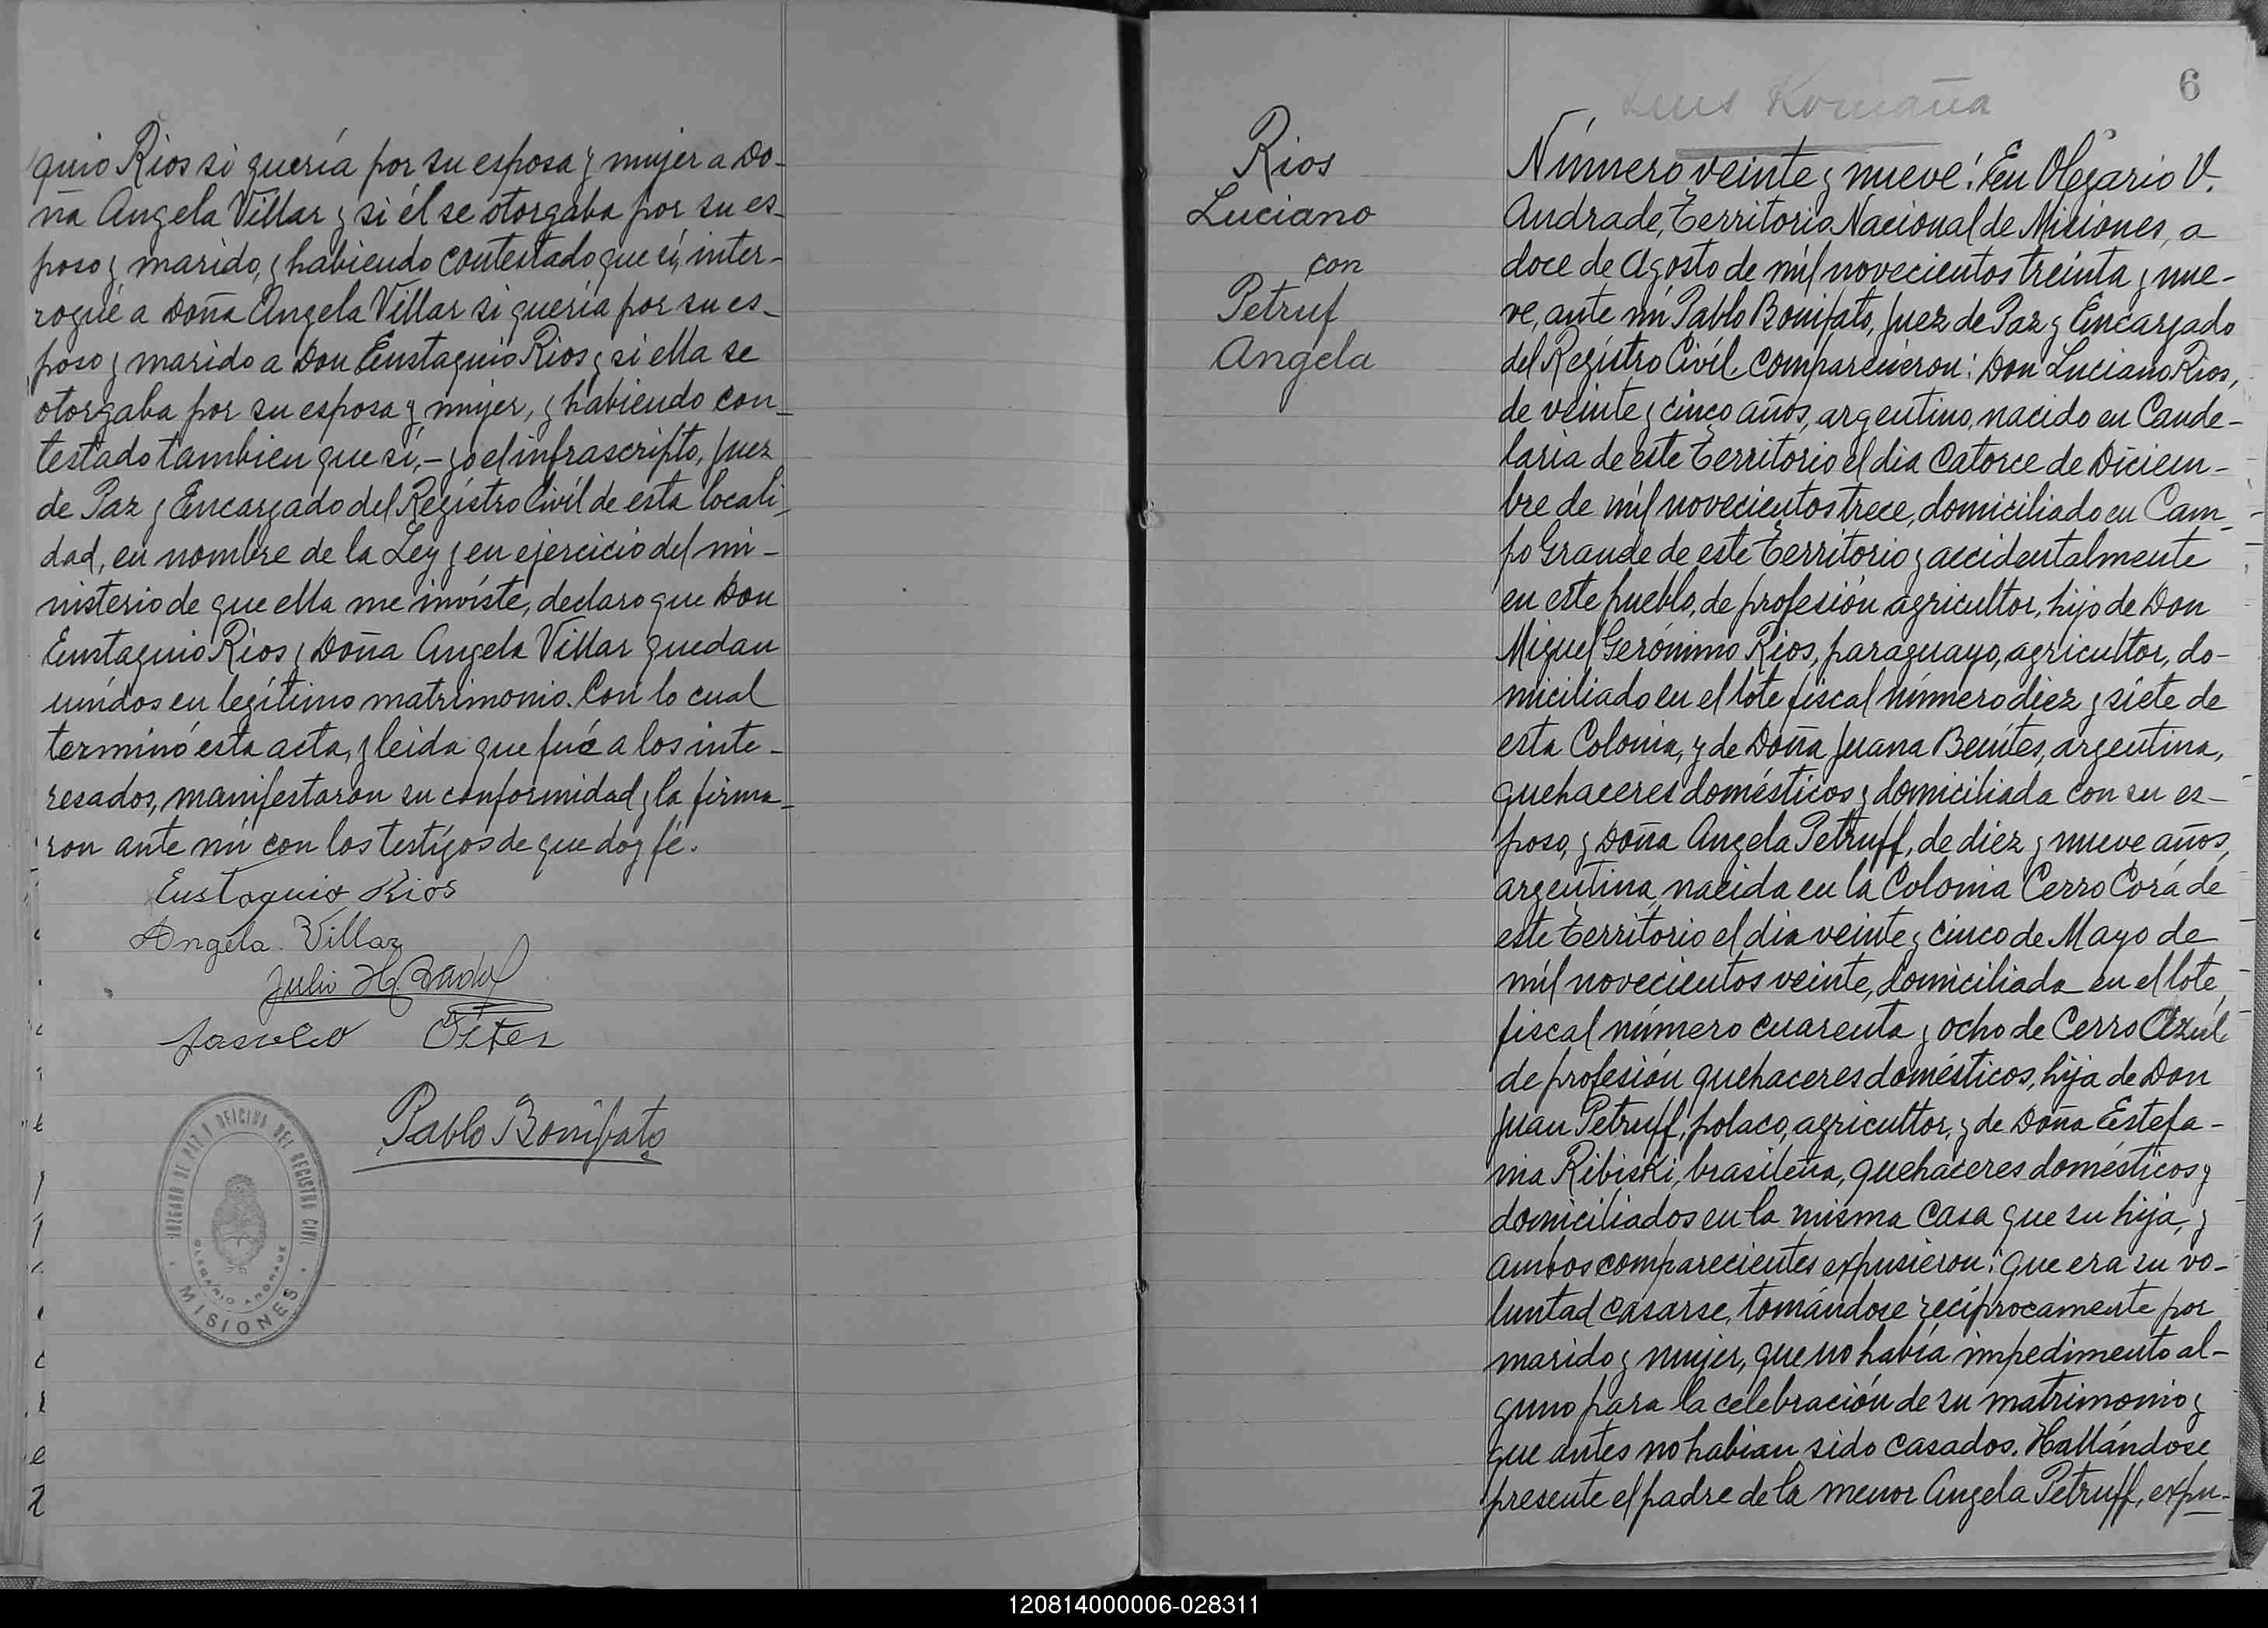 quio Rios si quería por su esposa y mujer a Do-
ña Angela Villar y si él se otorgaba por su es-
poso y marido, y habiendo contestado que sí, inter-
rogué a Doña Angela Villar si quería por su es-
poso y marido a Don Eustaquio Rios y si ella se
otorgaba por su esposa y mujer, y habiendo con-
testado tambien que sí,- yo el infrascripto, Juez
de Paz y Encargado del Regístro Civíl de esta locali-
dad, en nombre de la Ley y en ejercicio del mi-
nisterio de que ella me invíste, declaro que Don
Eustaquio Rios y Doña Angela Villar quedan
unídos en legítimo matrimonio. Con lo cual
terminó esta acta, y leida que fué a los inte-
resados, manifestaron su conformidad y la firma-
ron ante mí con los testígos de que doy fé.
Eustaquio Rios
Angela Villar
Julio H.
Pablo Bonifato
JUZGADO DE PAZ Y OFICINA DEL REGISTRO CIVIL
OLEGARIO ANDRADE
MISIONES
6
Luis Romaña
Rios
Luciano
con
Petruf
Angela
Número veinte y nueve: En Olegario V.
Andrade, Territorio Nacional de Misiones, a
doce de Agosto de mil novecientos treinta y nue-
ve, ante mí Pablo Bonifato, Juez de Paz y Encargado
del Regístro Civíl comparecieron: Don Luciano Rios,
de veinte y cinco años, argentino, nacido en Cande-
laria de este Territorio el dia catorce de Diciem-
bre de mil novecientos trece, domiciliado en Cam-
po Grande de este Territorio y accidentalmente
en este pueblo, de profesión agricultor, hijo de Don
Miguel Gerónimo Rios, paraguayo, agricultor, do-
miciliado en el lote fiscal número diez y siete de
esta Colonia, y de Doña Juana Benítes, argentina,
quehaceres domésticos y domiciliada con su es-
poso, y Doña Angela Petruff, de diez y nueve años,
argentina, nacida en la Colonia Cerro Corá de
este Territorio el dia veinte y cinco de Mayo de
mil novecientos veinte, domiciliada en el lote
fiscal número cuarenta y ocho de Cerro Azúl
de profesión quehaceres domésticos, hija de Don
Juan Petruff, polaco, agricultor, y de Doña Estefa-
nia Ribiski, brasileña, quehaceres domésticos y
domiciliados en la misma casa que su hija, y
ambos comparecientes expusieron: Que era su vo-
luntad casarse, tomándose recíprocamente por
marido y mujer, que no había impedimento al-
guno para la celebración de su matrimonio y
que antes no habian sido casados. Hallándose
presente el padre de la menor Angela Petruff, expu-
120814000006-028311